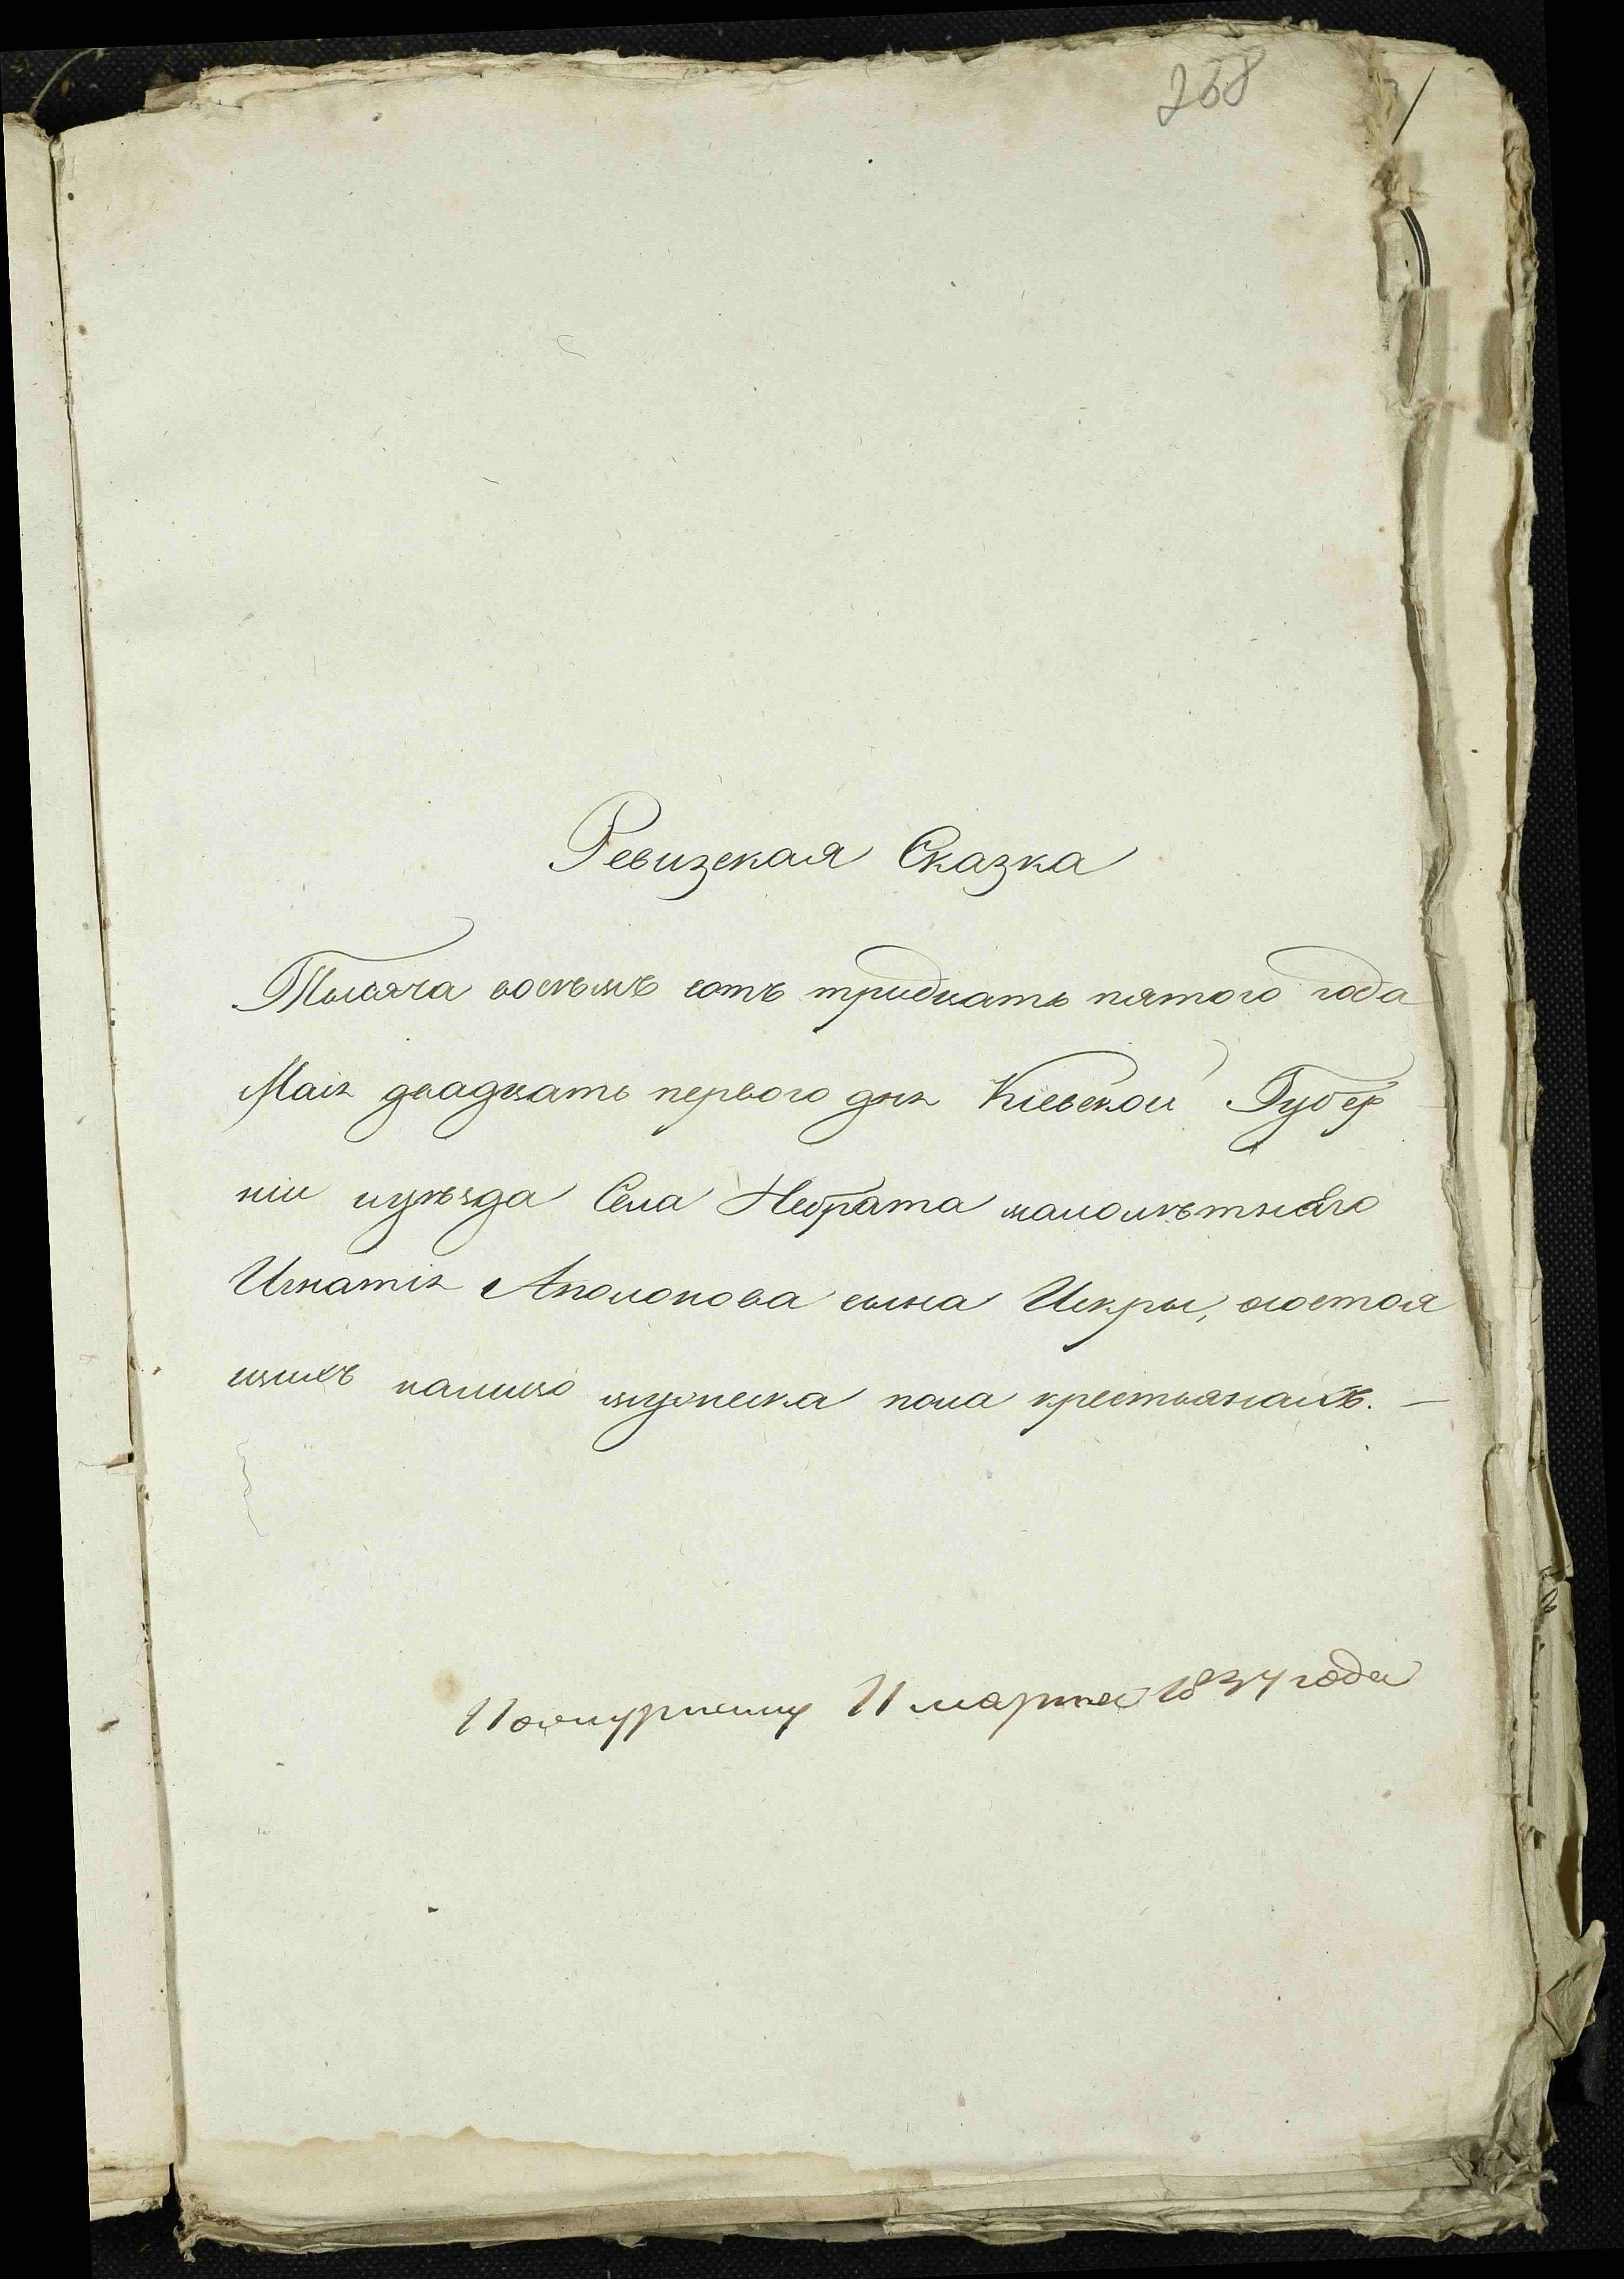 268
Ревизская Сказка
Тысяча восѣмъ сотъ тридцать пятого года
Маія двадцать первого дня Кіевской Губер
ніи иуѣзда Села Небрата малолѣтнаго
Игнатія Аполонова сына Искры, осостоя
щихъ налицо мужеска пола крестьянахъ. —
11 марта 1834 года